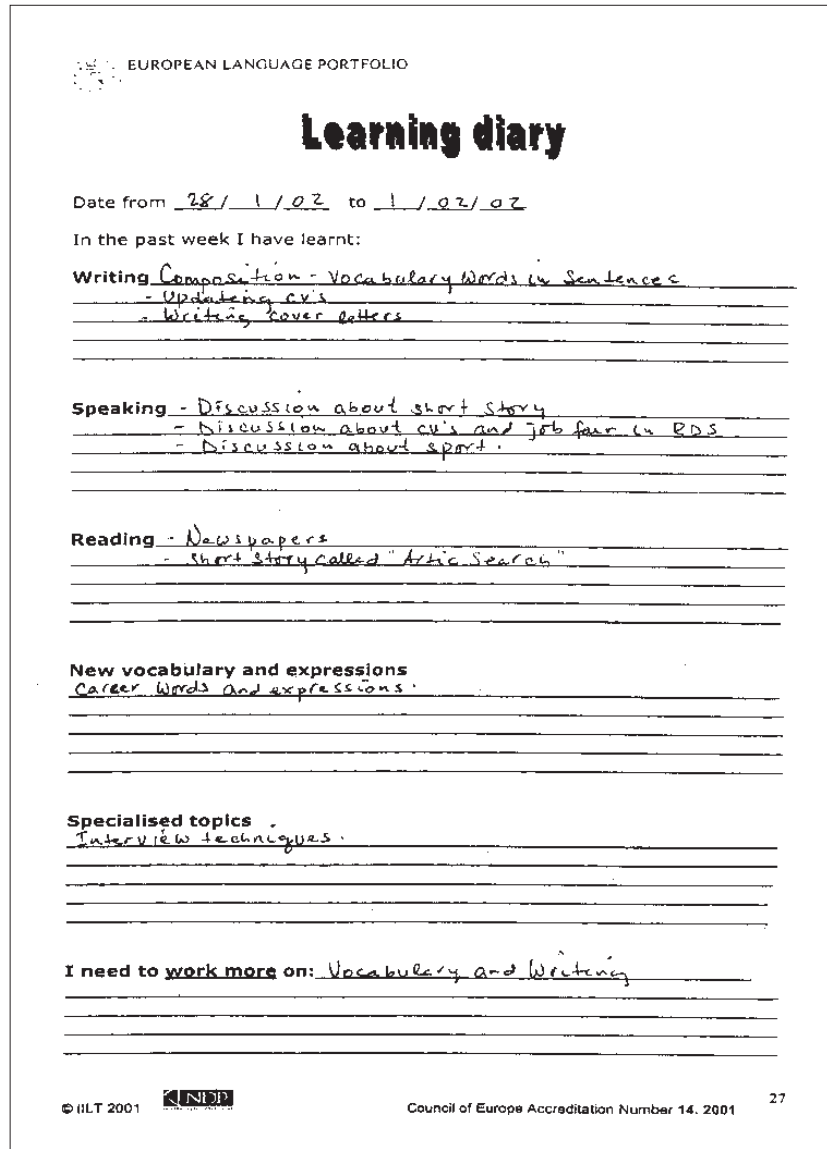 EUROPEAN LANGUAGE PORTFOLIO
Learning diary
Date from 28/ 1 /02 to 1 /02/02
In the past week I have learnt:
Writing Composition - Vocabulary Words in Sentences
- Updating cv's
- Writing cover letters
Speaking - Discussion about short story
- Discussion about cv's and job fair in RDS
- Discussion about sport.
Reading - Newspapers
- Short story called "Artic Search"
New vocabulary and expressions
Career words and expressions.
Specialised topics
Interview techniques.
I need to work more on: Vocabulary and Writing
© IILT 2001 NDP Council of Europe Accreditation Number 14. 2001 27